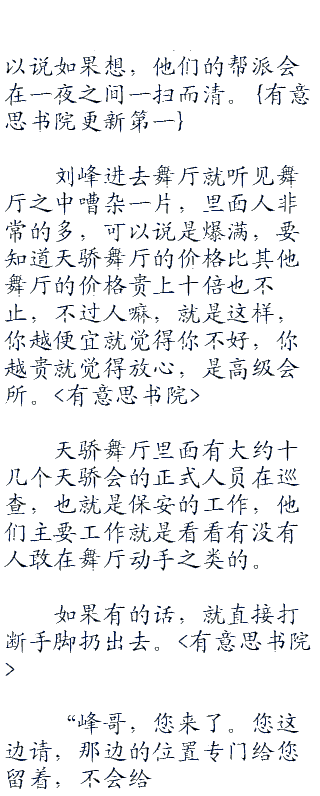 以说如果想，他们的帮派会
在一夜之间一扫而清。{有意
思书院更新第一}
刘峰进去舞厅就听见舞
厅之中嘈杂一片，里面人非
常的多，可以说是爆满，要
知道天骄舞厅的价格比其他
舞厅的价格贵上十倍也不
止，不过人嘛，就是这样，
你越便宜就觉得你不好，你
越贵就觉得放心，是高级会
所。<有意思书院>
天骄舞厅里面有大约十
几个天骄会的正式人员在巡
查，也就是保安的工作，他
们主要工作就是看看有没有
人敢在舞厅动手之类的。
如果有的话，就直接打
断手脚扔出去。<有意思书院
>
“峰哥，您来了。您这
边请，那边的位置专门给您
留着，不会给